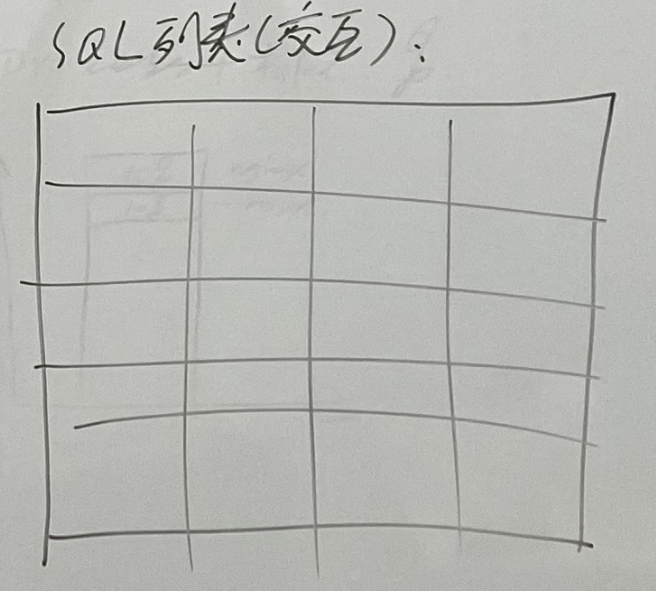 SQL列表(交互):